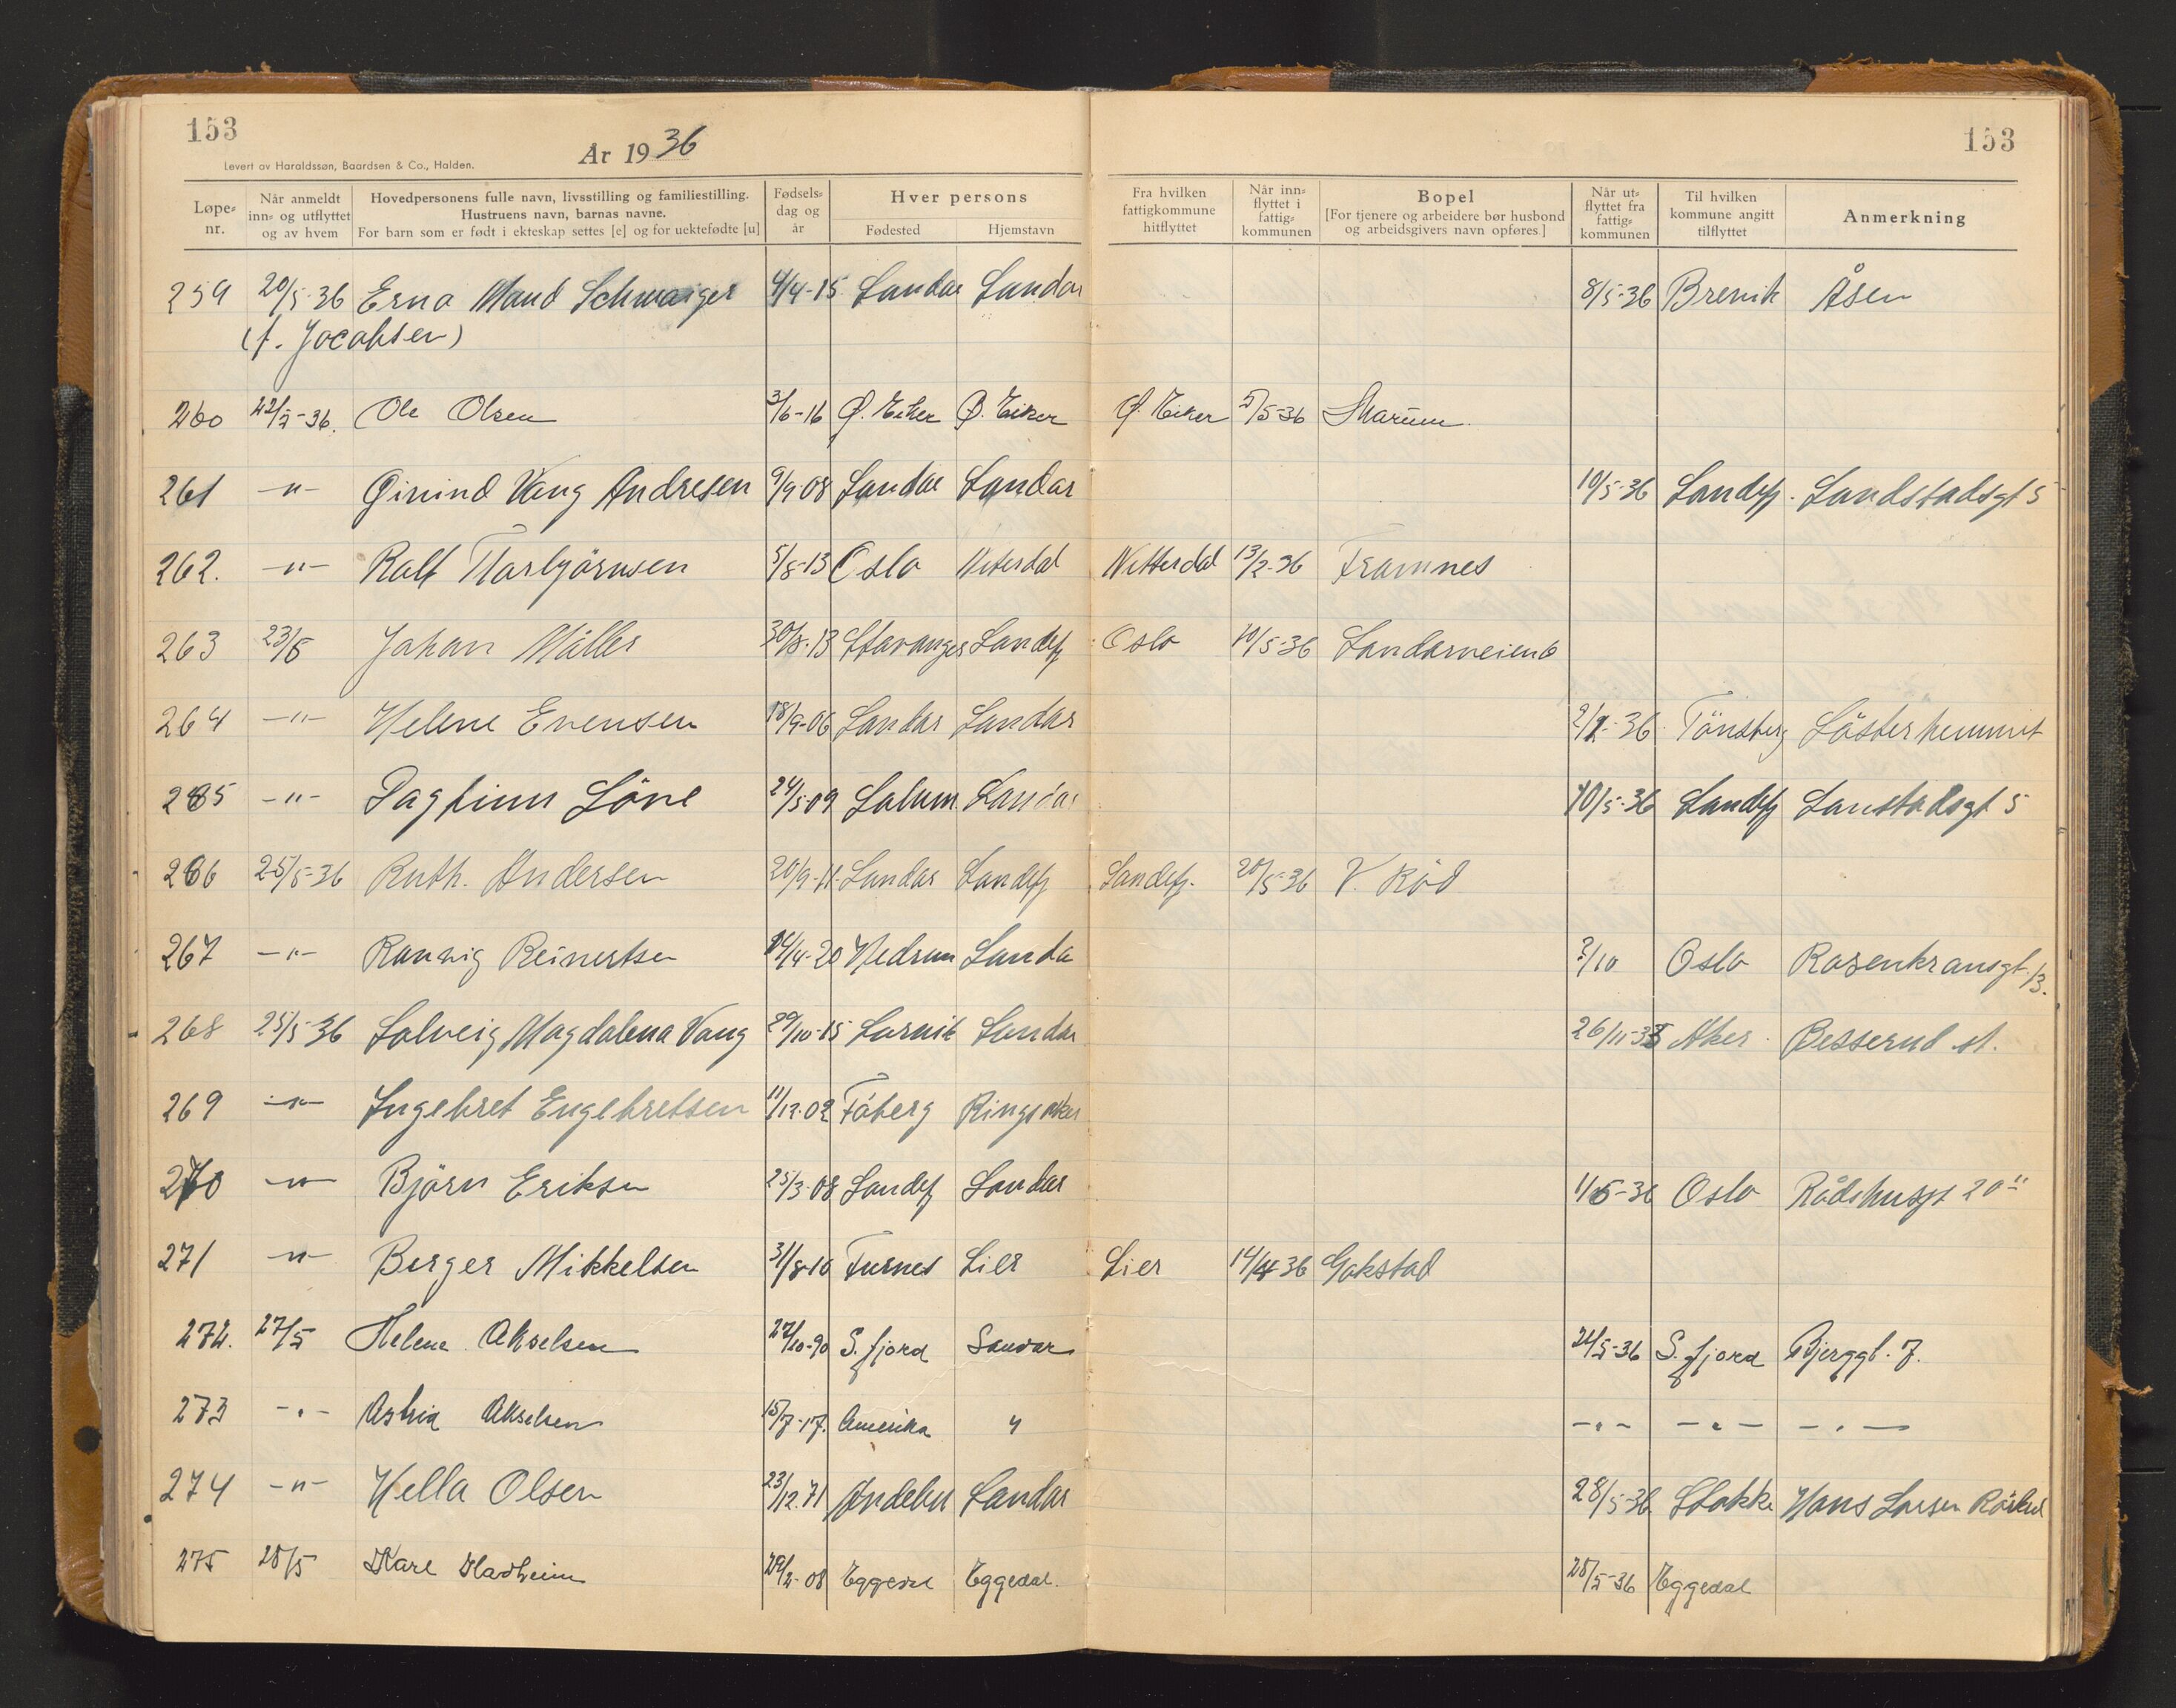 153
153
Levert av Haraldssøn, Baardsen & Co., Halden.
År 19 36
Løpe-nr.
Når anmeldt inn- og utflyttet og av hvem
Hovedpersonens fulle navn, livsstilling og familiestilling. Hustruens navn, barnas navne. For barn som er født i ekteskap settes [e] og for uektefødte [u]
Fødsels-dag og år
Hver persons
Fødested
Hjemstavn
Fra hvilken fattigkommune hitflyttet
Når inn-flyttet i fattig-kommunen
Bopel
[For tjenere og arbeidere bør husbond og arbeidsgivers navn opføres.]
Når ut-flyttet fra fattig-kommunen
Til hvilken kommune angitt tilflyttet
Anmerkning
259 20/5-36 Erna Maud Schwaiger 4/4-15 Sandar Sandar 8/5-36 Brevik Åsen
(f. Jacobsen)
260 22/5-36. Ole Olsen 3/6-16 Ø. Eiker Ø. Eiker Ø. Eiker 5/5-36
261 -"- Øivind Vang Andresen 9/9-08 Sandar Sandar 10/5-36 Sandefj. Landstadsgt 5
262. -"- Ralf Thorbjörnsen 5/8-13 Oslo Niterdal Nitterdal 13/2-36 Framnes
263 23/5 Johan Möller 30/8-13 Stavanger Sandefj Oslo 10/5-36 Sandarveien 6
264 -"- Helene Evensen 18/9-06 Sandar Sandar Tönsberg Söster hemmet
265 -"- Dagfinn Löne 24/5-09 Solum Sandar 10/5-36 Sandefj Lanstadsgt 5
266 25/5-36 Ruth. Andersen 20/9-11 Sandar Sandefj Sandefj. 20/5-36 V. Röd
267 -"- Ranvig Reinertsen 14/4-20 Hedrum Sanda /10 Oslo Rosenkransgt. 13.
268 25/5 36 Solveig Magdalena Vang 29/10-15 Larvik Sandar 26/11-35 Aker. Besserud st.
269 -"- Ingebret Engebretsen 11/12-02 Fåberg Ringsaker
270 -"- Björn Eriksen 25/3-08 Sandefj Sandar 1/5-36 Oslo Rådshusgt 20"
271 -"- Birger Mikkelsen 31/8-10 Furnes Lier Lier 14/4-36 Gokstad
272. 27/5 Helene Akselsen 27/10-90 S.fjord Sandar 24/5-36 S.fjord Bjerggt. 7.
273 -"- Astrid Akselsen 15/7-17. Amerika " -"- -"- -"-
274 -"- Hella Olsen 23/12.71 Andebu Sandar 28/5-36 Stokke Hans Larsen
275 28/5 Kare Hadheim 29/2-08 Eggedal Eggedal. 28/5-36 Eggedal